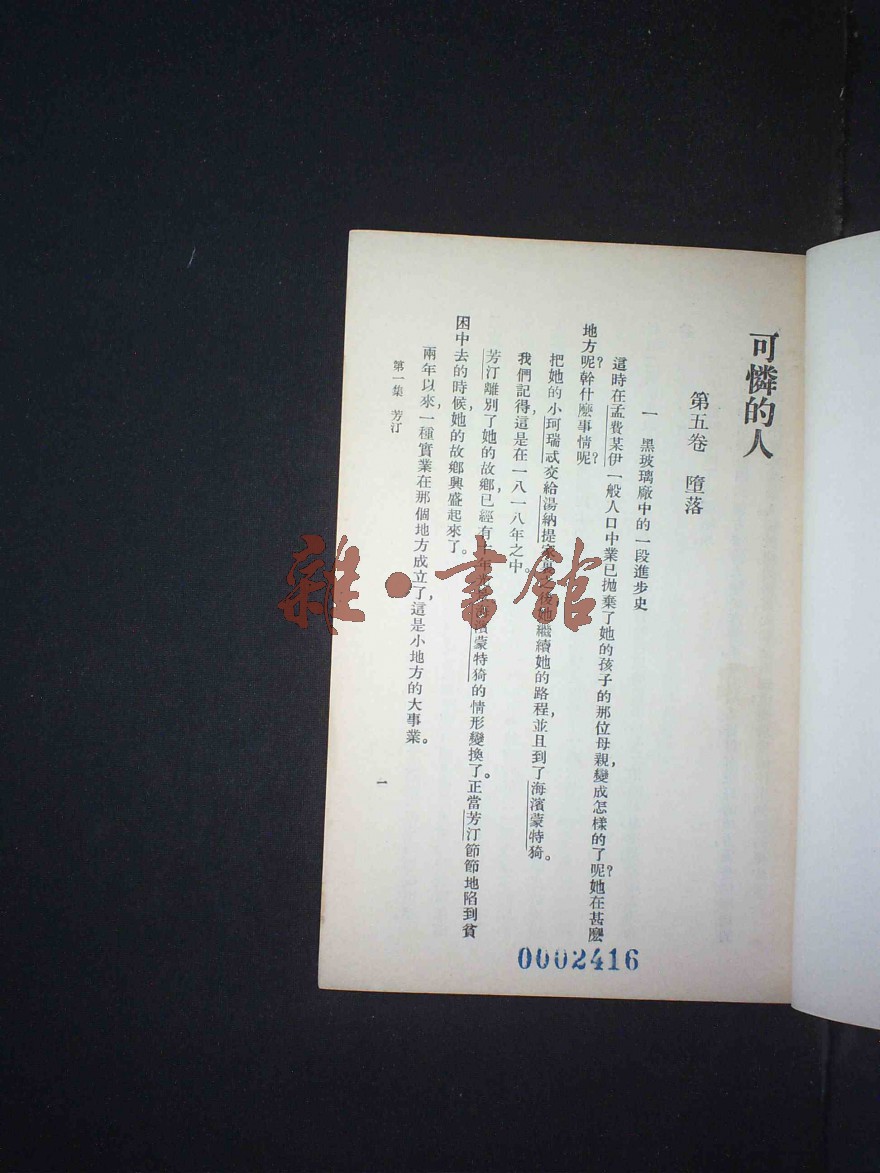 可憐的人
第五卷 墮落
一 黑玻璃廠中的一段進步史
這時在孟費某伊一般人口中業已拋棄了她的孩子的那位母親,變成怎樣的了呢?她在甚麼
地方呢?幹什麼事情呢?
把她的小珂瑞忒交給湯納提家 後她繼續她的路程,並且到了海濱蒙特猗。
我們記得,這是在一八一八年之中。
芳汀離別了她的故鄉,已經有 年 海濱蒙特猗的情形變換了。正當芳汀節節地陷到貧
困中去的時候,她的故鄉興盛起來了。
兩年以來,一種實業在那個地方成立了,這是小地方的大事業。
第一集 芳汀
一
0002416
雜·書館